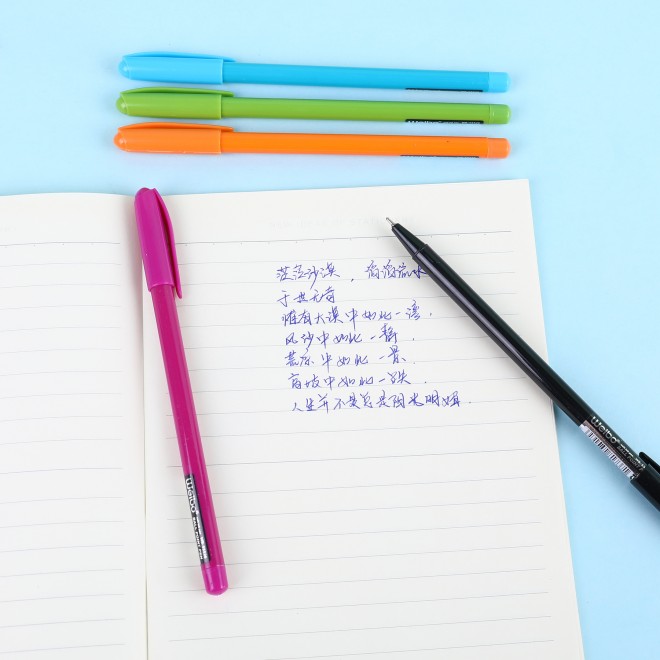 茫茫沙漠,滔滔流水
于世无奇
惟有大漠中如此一湾,
风沙中如此一静,
荒凉中如此一景,
高坡中如此一跌,
人生并不是总是阳光明媚.
Weibo
Weibo
Weibo